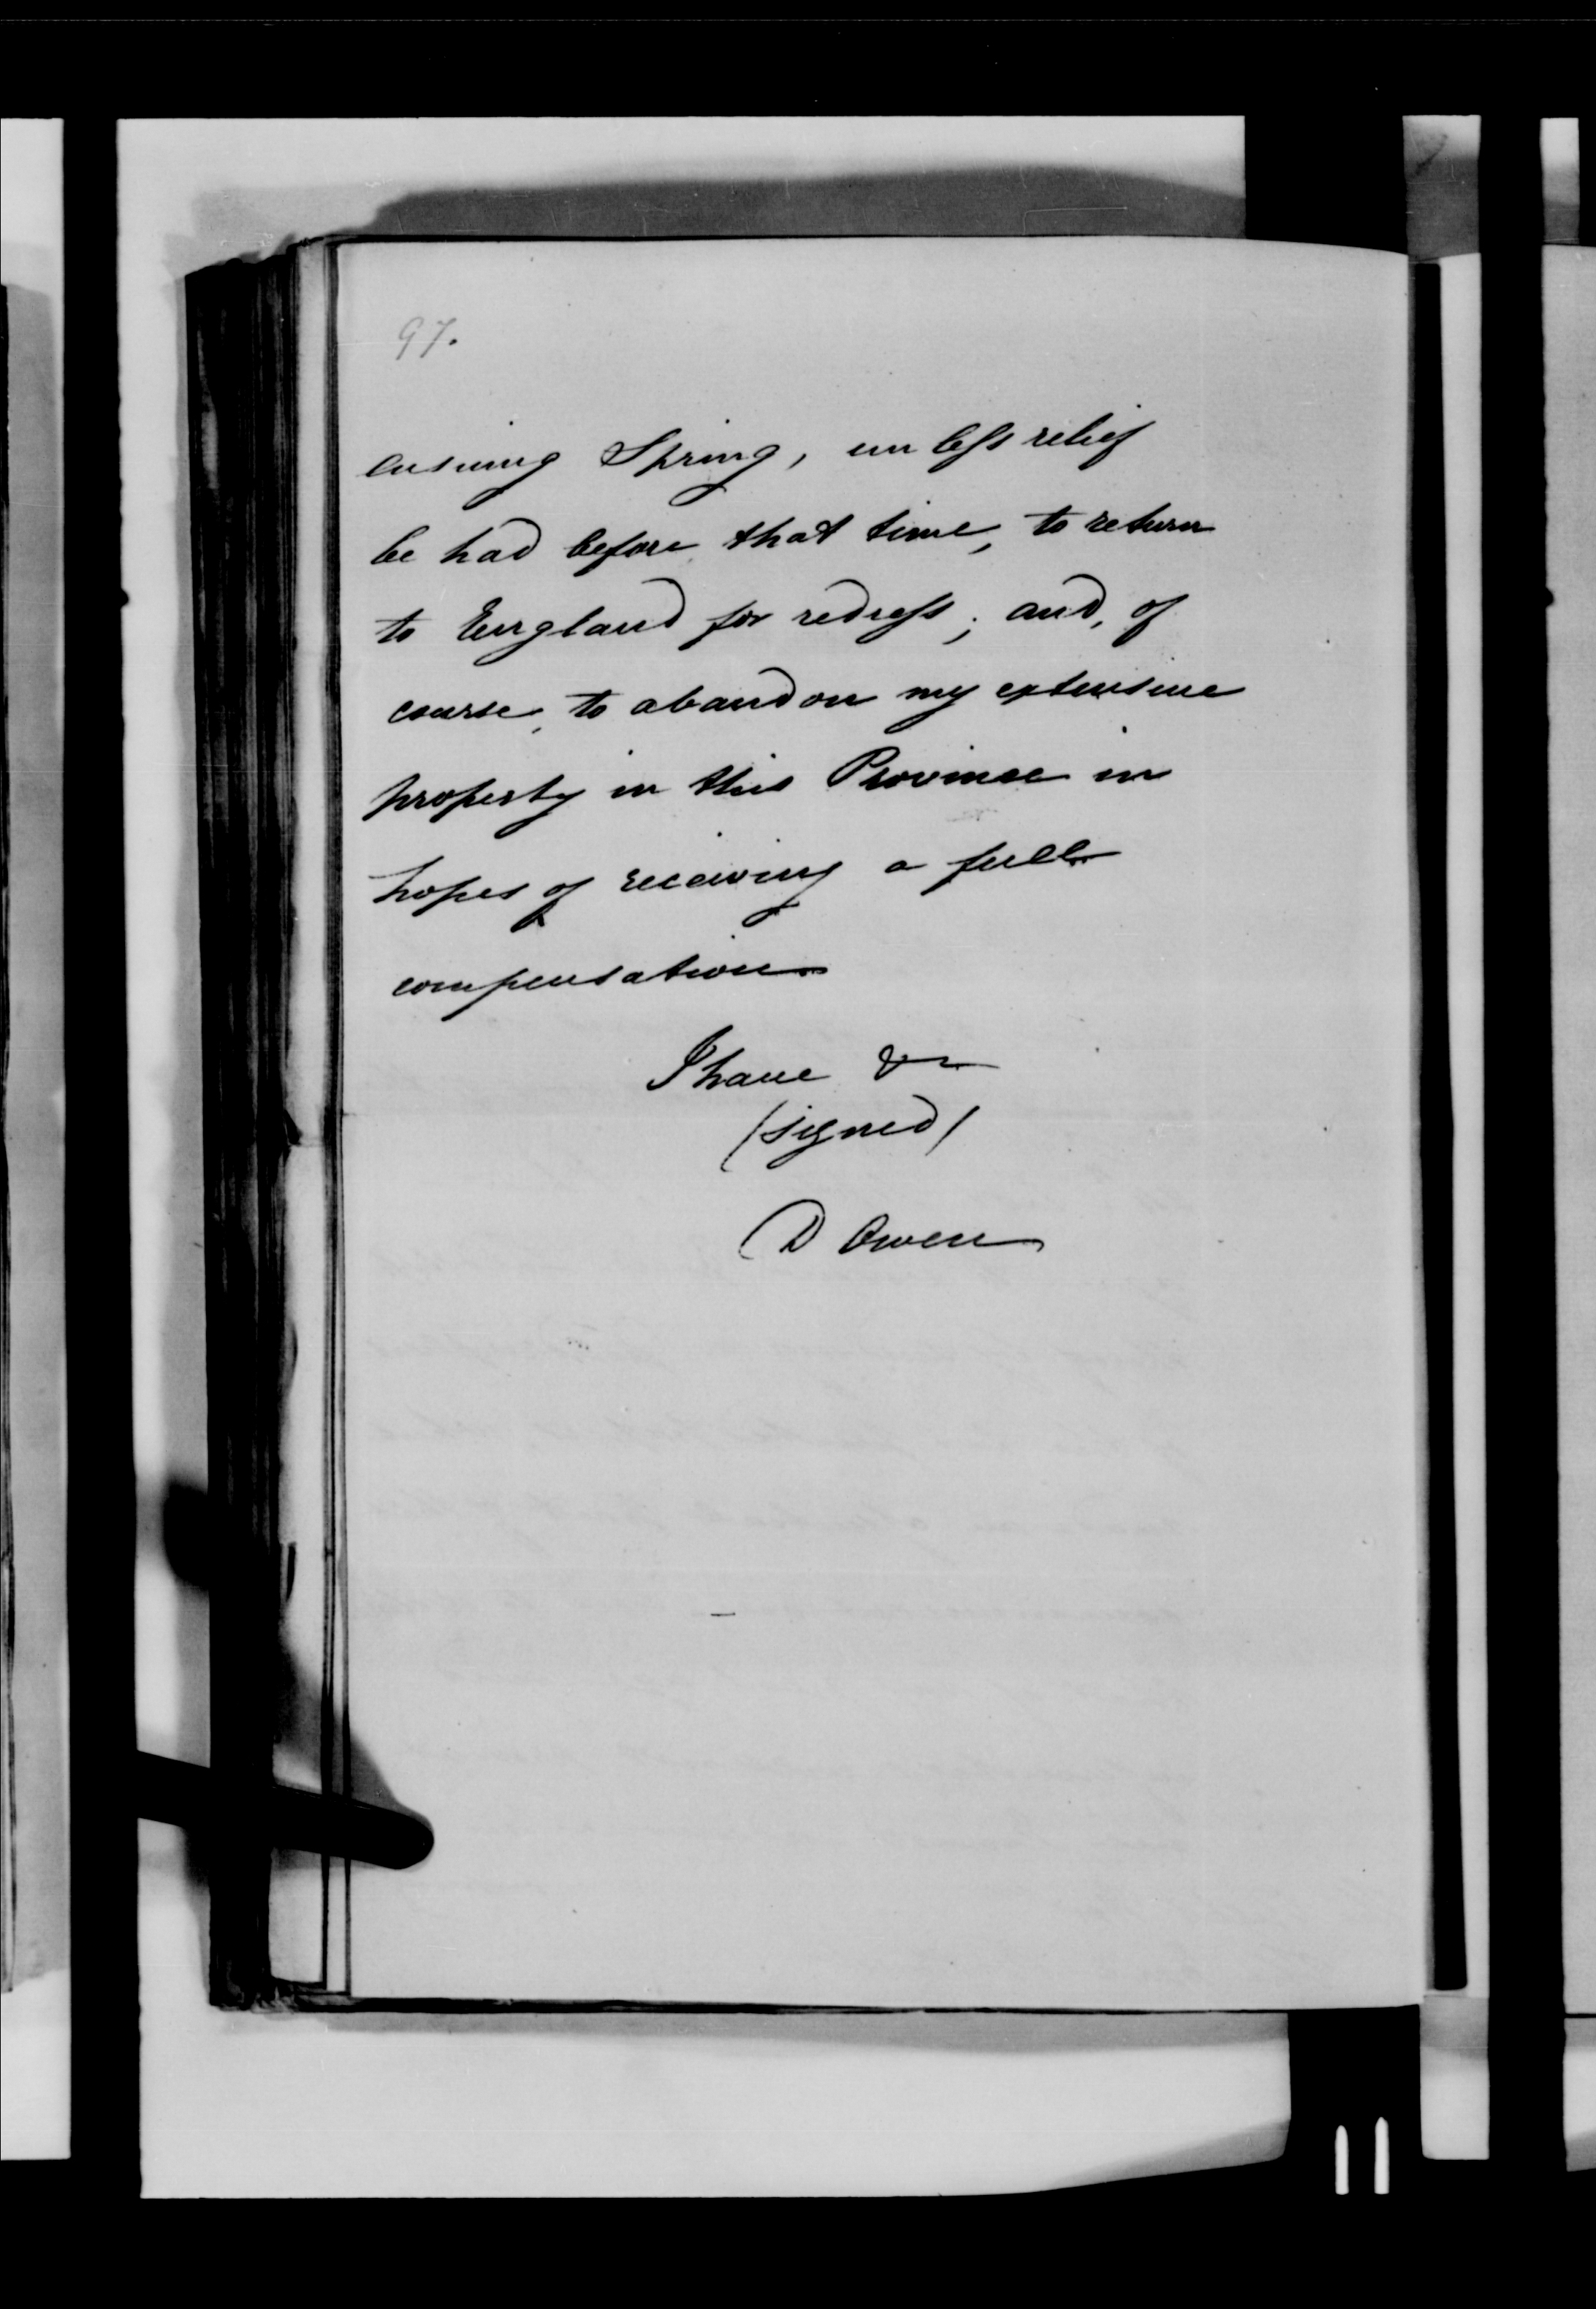 97.
ensuing Spring, unless relief
be had before that time, to return
to England for redress; and, of
course, to abandon my extensive
property in this Province in
hopes of receiving a full
compensation
I have &c
(signed)
D Owen